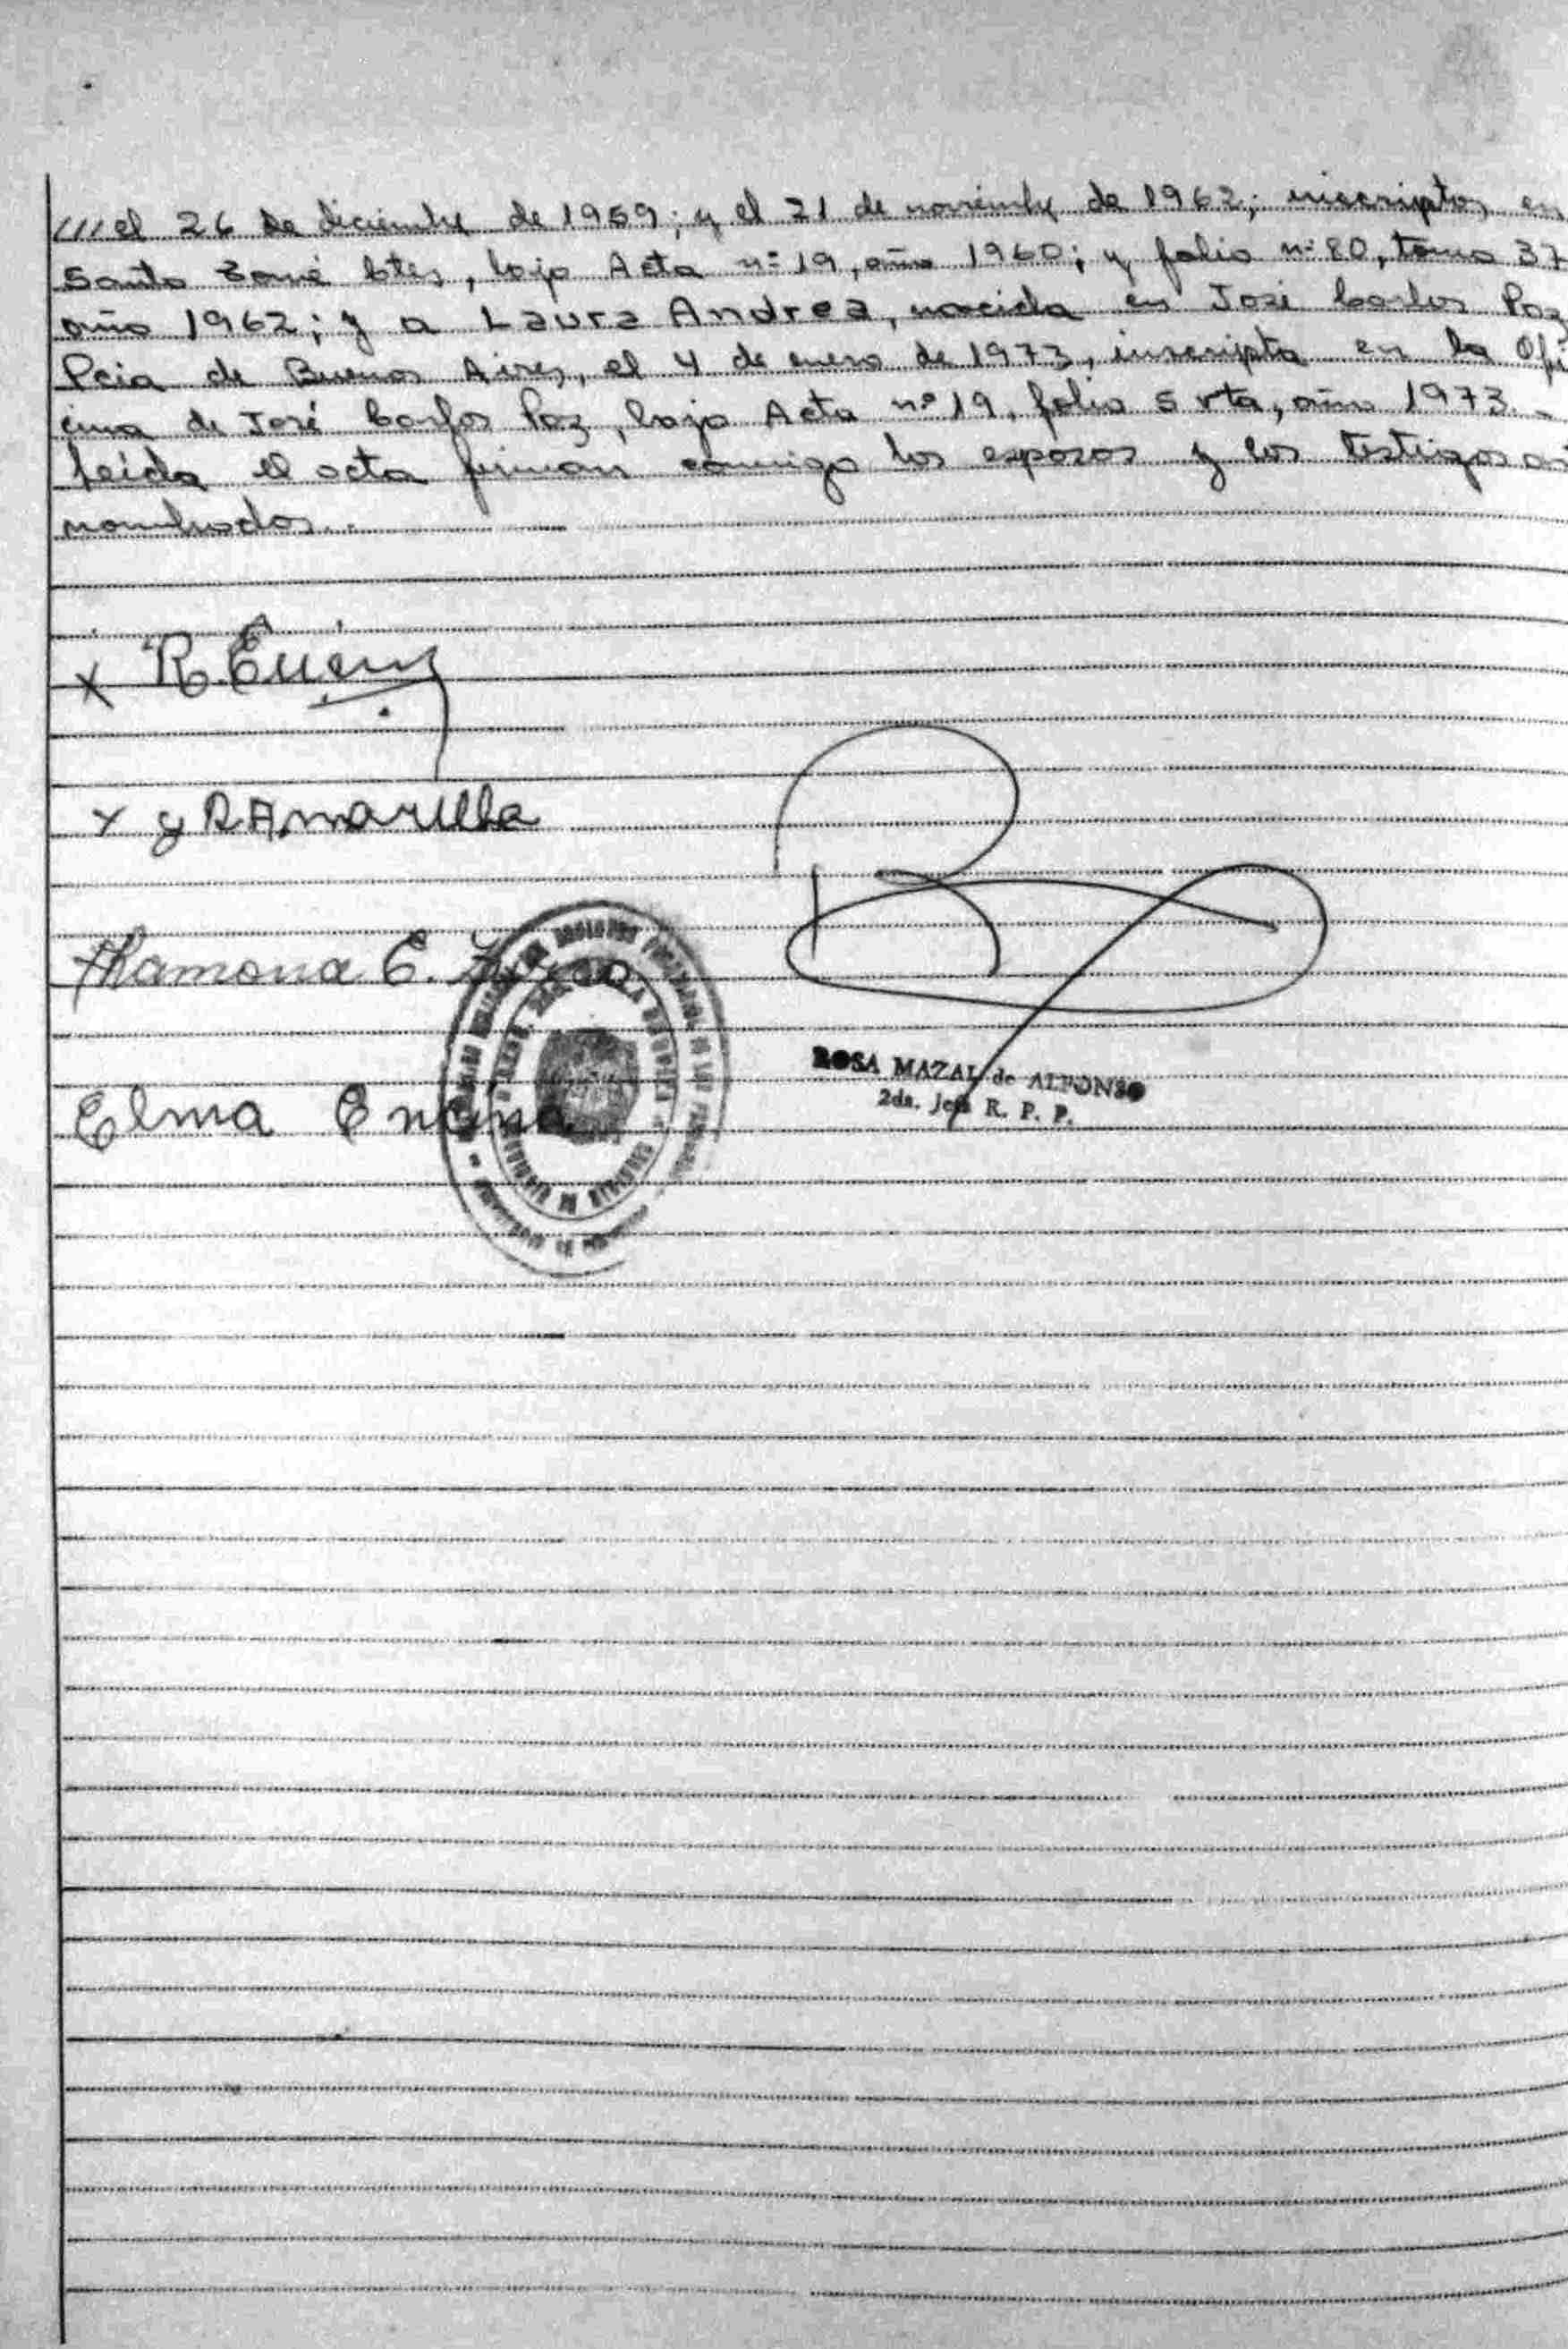 ///el 26 de diciembre de 1959; y el 21 de noviembre de 1962; inscriptos en
Santo Tomé Ctes, bajo Acta nº 19, año 1960; y folio nº 80, tomo 37
año 1962; y a Laura Andrea, nacida en José Carlos Paz
Pcia de Buenos Aires, el 4 de enero de 1973, inscripta en la Ofi
cina de José Carlos Paz, bajo Acta nº 19, folio 5 vta, año 1973.-
Leída el acta firman conmigo los esposos y los testigos a
nombrados..
x R.
x y R Amarilla
Ramona E.
Elma Encina
ROSA MAZAL de ALFONSO
2da. Jefa R. P. P.